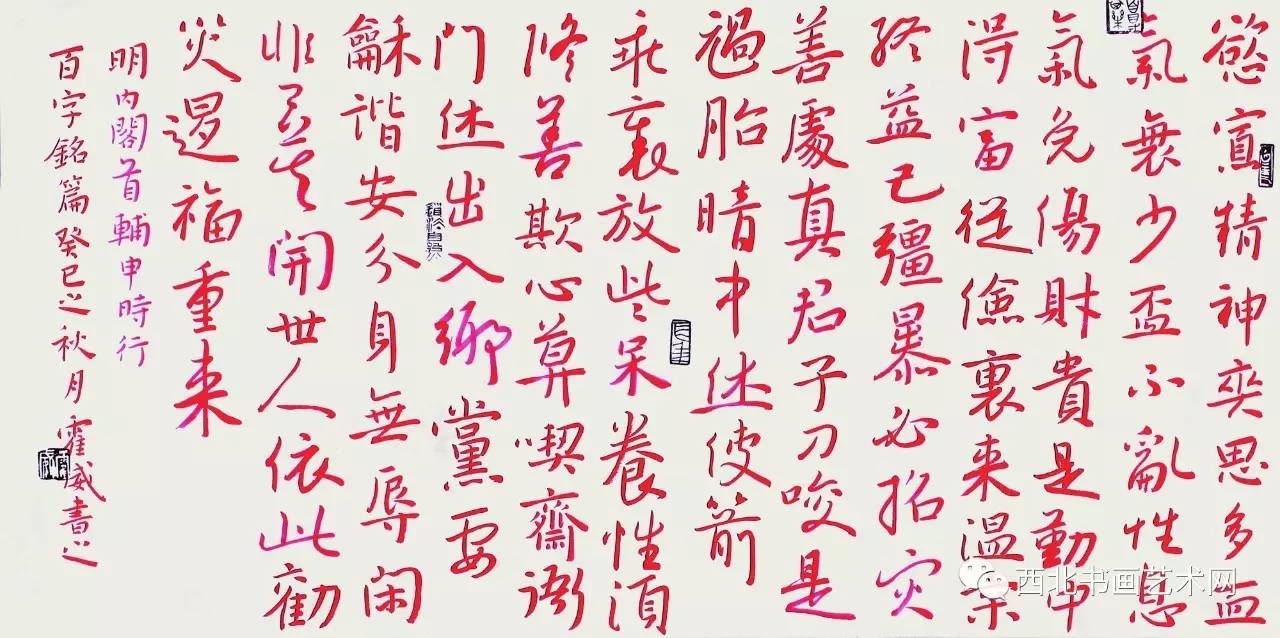 慾寡精神爽思多血
氣衰少盃不亂性忍
氣免傷財貴是勤中
得富從儉裏来温柔
終益己彊暴必招灾
善處真君子刀咬是
禍胎暗中休使箭
乖裏放些呆養性須
修善欺心莫喫齋衙
門休出入鄉黨要
龢諧安分身無辱閑
非口莫開世人依此勸
災退福重来
明内閣首輔申時行
百字銘篇癸巳之秋月霍威書之
西北书画艺术网